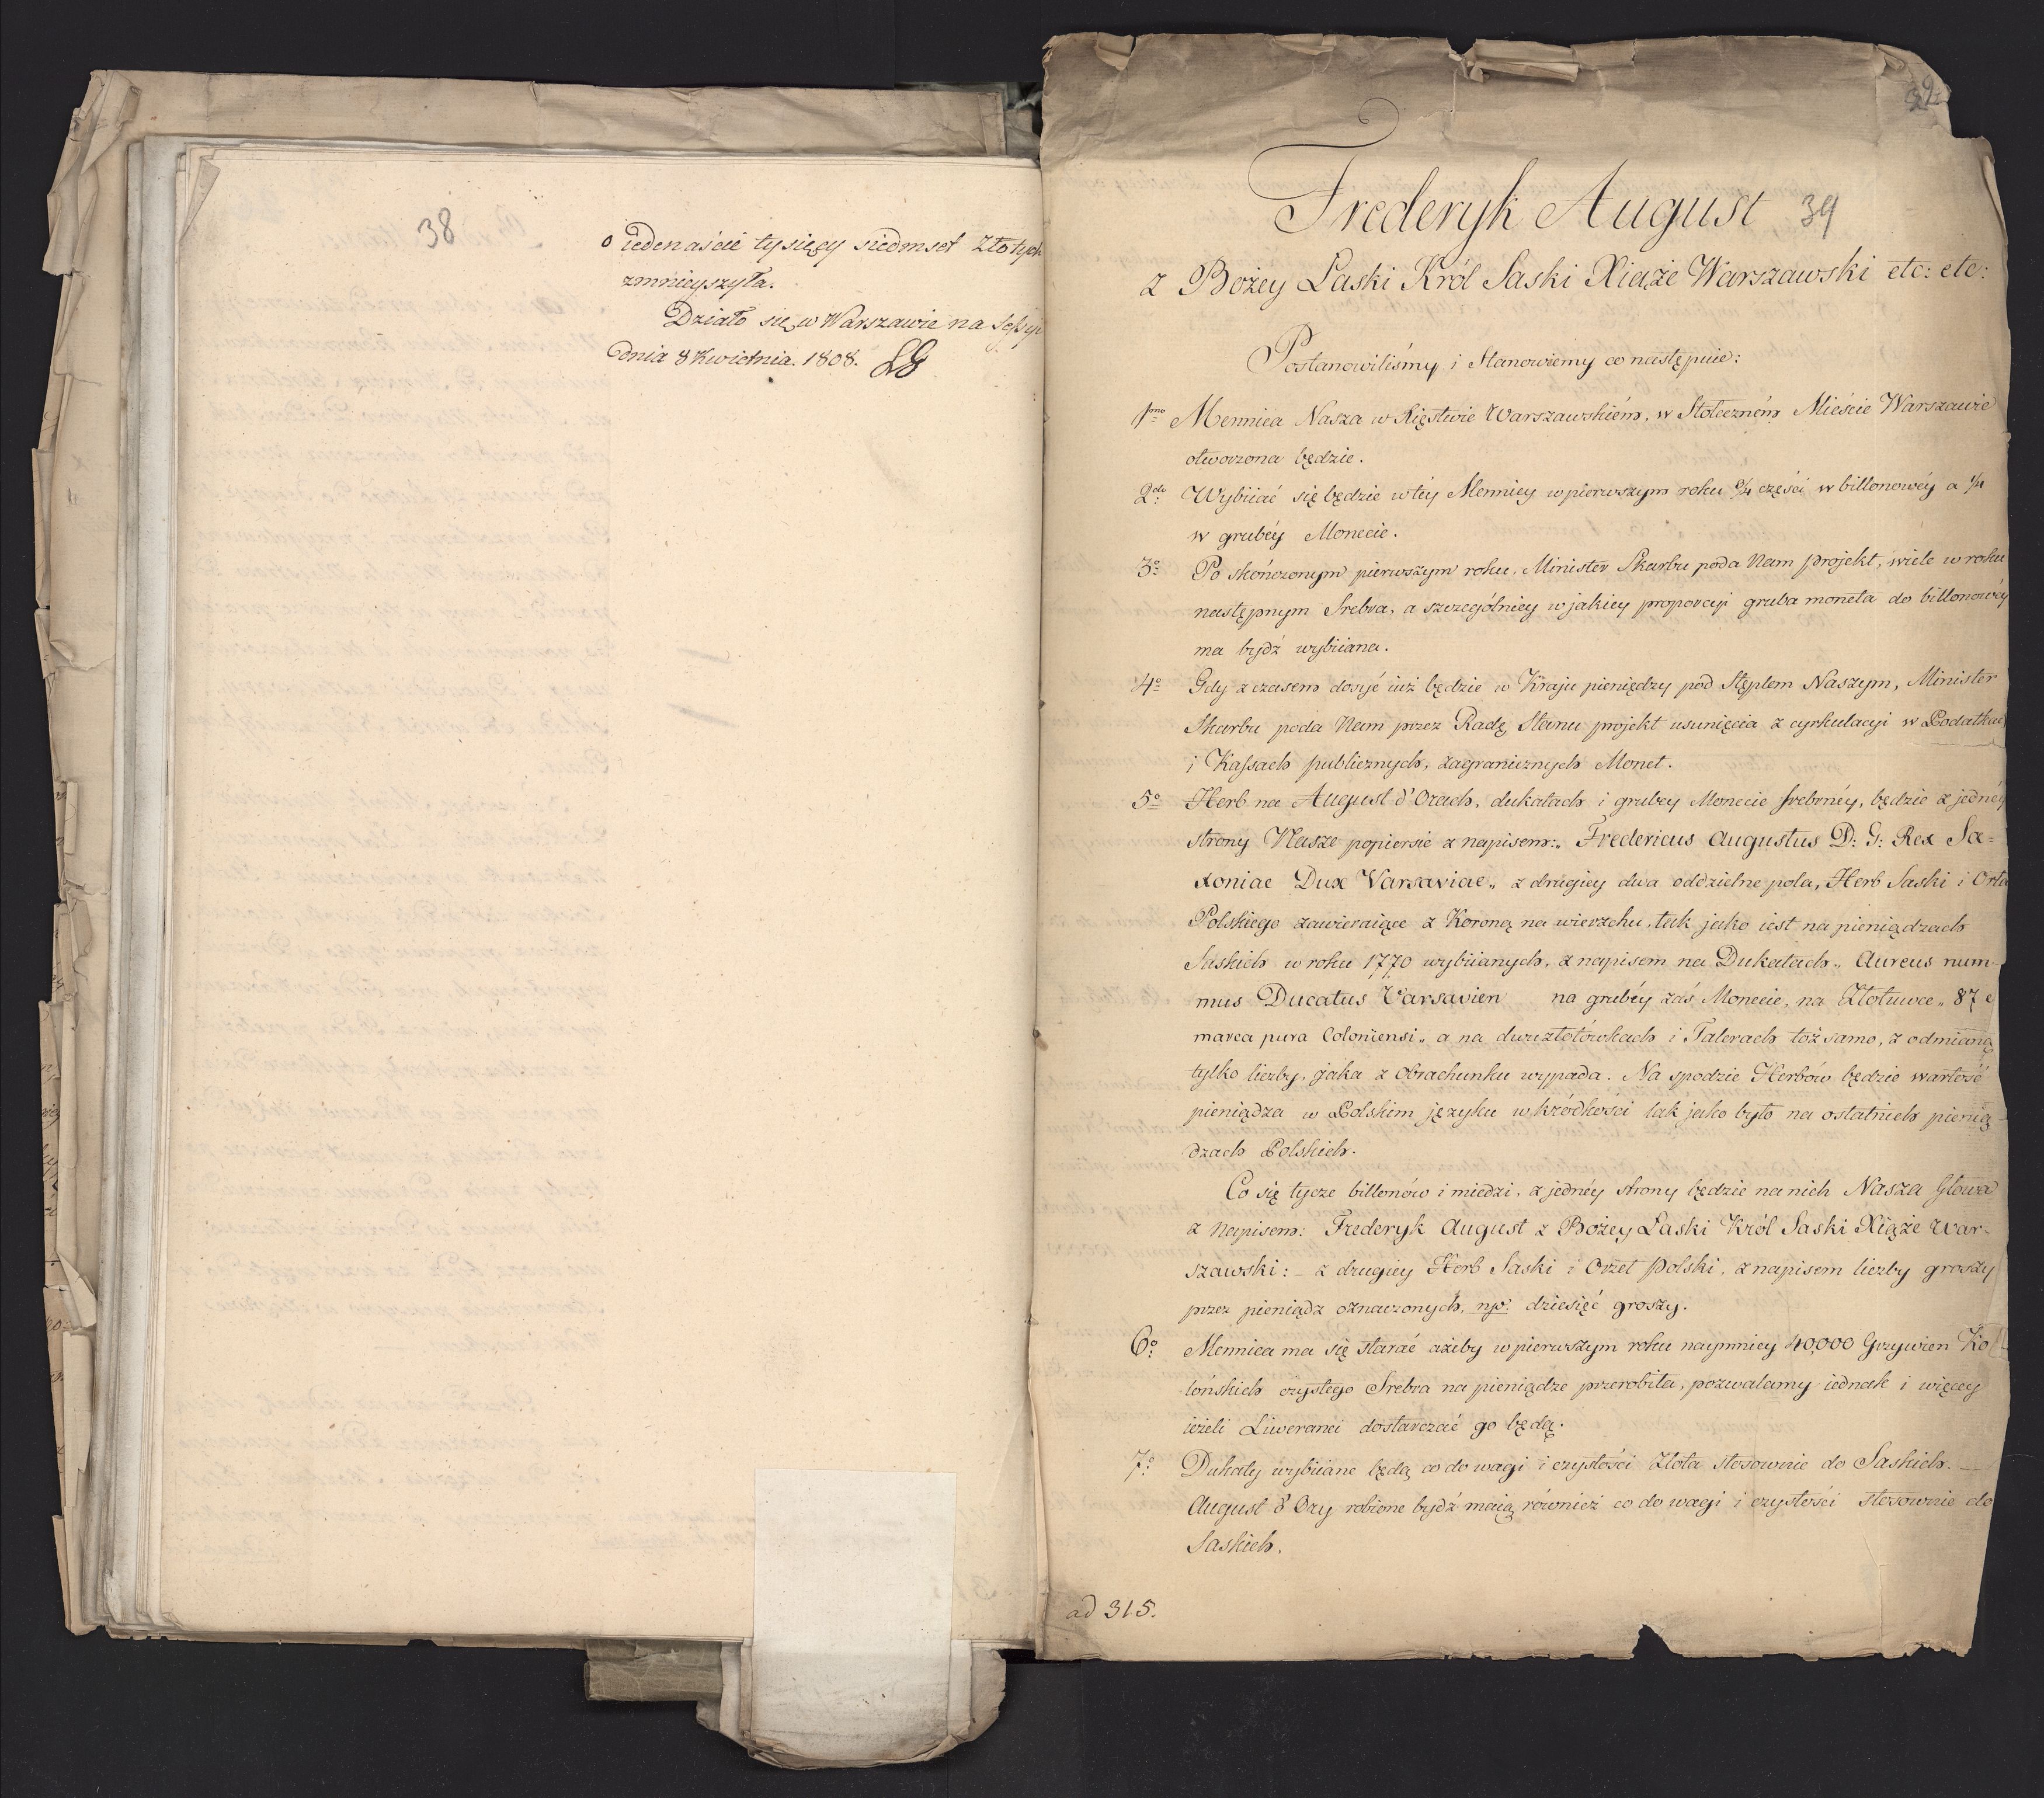 38
o iedenaście tysięcy siedmset Złotych
zmnieyszyła.
Działo się w Warszawie na Sessyi
dnia 8 Kwietnia. 1808.
39
Frederyk August
z Bożey Łaski Król Saski Xiąże Warszawski etc: etc:
Postanowiliśmy i Stanowiemy co następuie:
1mo Mennica Nasza w Xięstwie Warszawskiém, w Stołeczném Mieście Warszawie
otworzona będzie.
2do Wybiiać się będzie w téy Mennicy w pierwszym roku części w billonowéy a 1/4
w grubéy Monecie.
3o Po skończonym pierwszym roku, Minister Skarbu poda Nam projekt, wiele w roku
następnym Srebra, a szczególniey w jakiey proporcyi gruba moneta do billonowéy
ma bydź wybiiana.
4o Gdy z czasem dosyć iuż będzie w Kraju pieniędzy pod Stęplem Naszym, Minister
Skarbu poda Nam przez Radę Stanu projekt usunięcia z cyrkulacyi w Podatkach
i Kassach publicznych, zagranicznych Monet.
5o Herb na August d'Orach, dukatach i grubey Monecie srebrnéy, będzie z jednéy
strony Nasze popiersie z napisem: „Fredericus Augustus D: G: Rex Sa=
xoniae Dux Varsaviae„ z drugiey dwa oddzielne pola, Herb Saski i Orła
Polskiego zawieraiące z Koroną na wierzchu, tak jako iest na pieniądzach
Saskich w roku 1770 wybiianych, z napisem na Dukatach „Aureus num-
mus Ducatus Varsavien na grubéy zaś Monecie, na Złotuwce „87 e
marca pura Coloniensi„ a na dwuzłotówkach i Talerach toż samo, z odmianą
tylko liczby, jaka z Obrachunku wypada. Na spodzie Herbów będzie wartość
pieniądza w Polskim języku w krótkości tak jako było na ostatnich pienią-
dzach Polskich.
Co się tycze billonów i miedzi, z jednéy strony będzie na nich Nasza Głowa
z Napisem: Frederyk August z Bożey Łaski Król Saski Xiąże War-
szawski: – z drugiey Herb Saski i Orzeł Polski, z napisem liczby groszy
przez pieniądz oznaczonych, np. dziesięć groszy.
6o Mennica ma się starać ażeby w pierwszym roku naymniey 40,000 Grzywien Ko
lońskich czystego Srebra na pieniądze przerobiła, pozwalamy iednak i więcey
ieżeli Liweranci dostarczać go będą.
7o Dukaty wybiiane będą co do wagi i czystości Złota stosownie do Saskich. –
August d'Ory robione bydź maią również co do wagi i czystości stosownie do
Saskich.
ad 315.